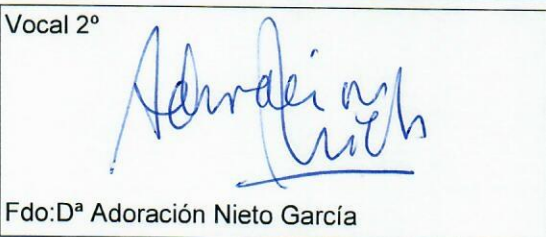 Vocal 2º
Adoración
Nieto
Fdo:Dª Adoración Nieto García